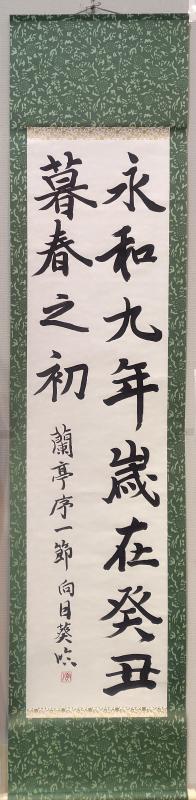 永和九年歳在癸丑
暮春之初
蘭亭序一節 向日葵